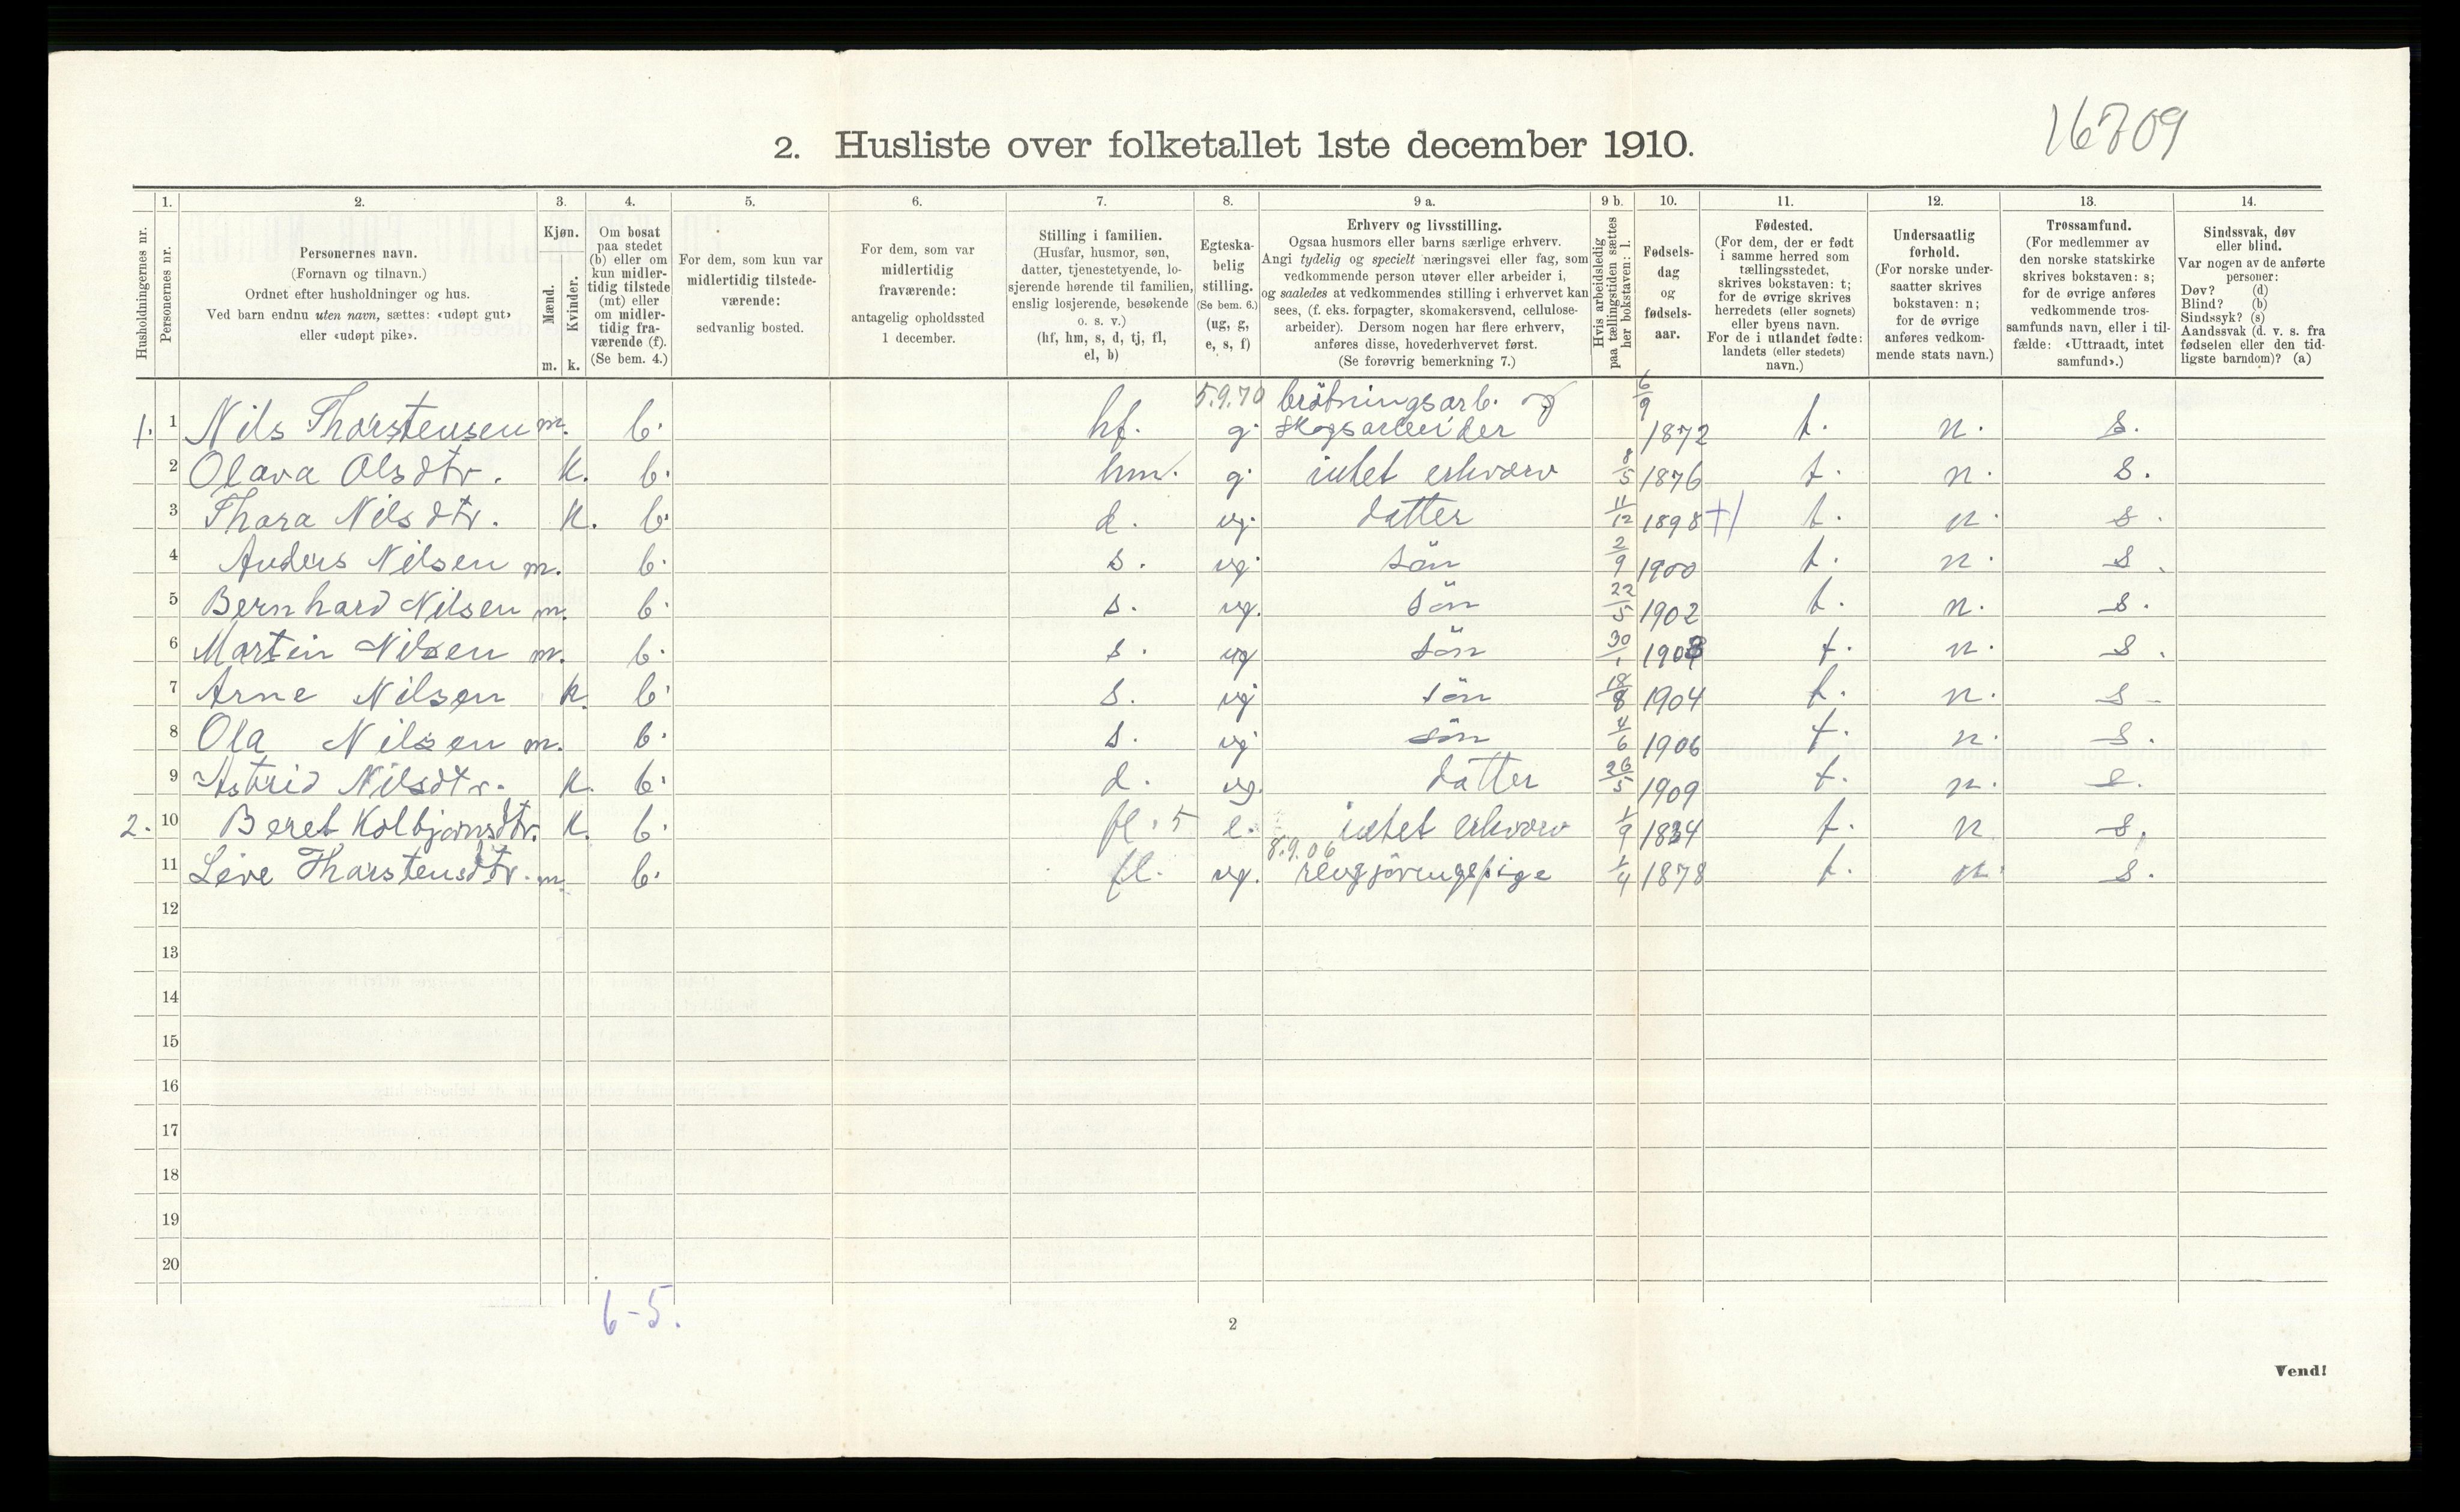 16709
2. Husliste over folketallet 1ste december 1910.
Husholdningernes nr.
1.
Personernes nr.
2.
Personernes navn.
(Fornavn og tilnavn.)
Ordnet efter husholdninger og hus.
Ved barn endnu uten navn, sættes: «udøpt gut»
eller «udøpt pike».
3.
Kjøn.
Mænd.
m.
Kvinder.
k.
4.
Om bosat
paa stedet
(b) eller om
kun midler-
tidig tilstede
(mt) eller
om midler-
tidig fra-
værende (f).
(Se bem. 4.)
5.
For dem, som kun var
midlertidig tilstede-
værende:
sedvanlig bosted.
6.
For dem, som var
midlertidig
fraværende:
antagelig opholdssted
1 december.
7.
Stilling i familien.
(Husfar, husmor, søn,
datter, tjenestetyende, lo-
sjerende hørende til familien,
enslig losjerende, besøkende
o. s. v.)
(hf, hm, s, d, tj, fl,
el, b)
8.
Egteska-
belig
stilling.
(Se bem. 6.)
(ug, g,
e, s, f)
9 a.
Erhverv og livsstilling.
Ogsaa husmors eller barns særlige erhverv.
Angi tydelig og specielt næringsvei eller fag, som
vedkommende person utøver eller arbeider i,
og saaledes at vedkommendes stilling i erhvervet kan
sees, (f. eks. forpagter, skomakersvend, cellulose-
arbeider). Dersom nogen har flere erhverv,
anføres disse, hovederhvervet først.
(Se forøvrig bemerkning 7.)
9 b.
Hvis arbeidsledig
paa tællingstiden sættes
her bokstaven: l.
10.
Fødsels-
dag
og
fødsels-
aar.
11.
Fødested.
(For dem, der er født
i samme herred som
tællingsstedet,
skrives bokstaven: t;
for de øvrige skrives
herredets (eller sognets)
eller byens navn.
For de i utlandet fødte:
landets (eller stedets)
navn.)
12.
Undersaatlig
forhold.
(For norske under-
saatter skrives
bokstaven: n;
for de øvrige
anføres vedkom-
mende stats navn.)
13.
Trossamfund.
(For medlemmer av
den norske statskirke
skrives bokstaven: s;
for de øvrige anføres
vedkommende tros-
samfunds navn, eller i til-
fælde: «Uttraadt, intet
samfund».)
14.
Sindssvak, døv
eller blind.
Var nogen av de anførte
personer:
Døv? (d)
Blind? (b)
Sindssyk? (s)
Aandssvak (d. v. s. fra
fødselen eller den tid-
ligste barndom)? (a)
5.9.70 brötningsarb. og 6/9
1. 1 Nils Thorstensen m. b. hf. g. skogsarbeider 1872 t. n. s.
2 Olava Olsdtr. k. b. hm. g. intet erhverv 8/5 1876 t. n. s.
3 Thora Nilsdtr. k. b. d. ug. datter 11/12 1898 t. n. s.
4 Anders Nilsen m. b. s. ug. sön 2/9 1900 t. n. s.
5 Bernhard Nilsen m. b. s. ug. sön 22/5 1902 t. n. s.
6 Martin Nilsen m. b. s. ug sön 30/1 1903 t. n. s.
7 Arne Nilsen k. b. s. ug sön 18/8 1904 t. n. s
8 Ola Nilsen m. b. s. ug sön 4/6 1906 t. n. s.
9 Astrid Nilsdtr. k. b. d. ug. datter 26/5 1909 t. n. s.
2. 10 Beret Kolbjørnsdtr. k. b. fl. 5 e. intet erhverv 1/9 1834 t. n s.
8.9.06
11 Live Thorstensdtr. m. b. fl. ug. rengjöringspige 1/4 1878 t. n. s.
12
13
14
15
16
17
18
19
20
6-5.
2
Vend!